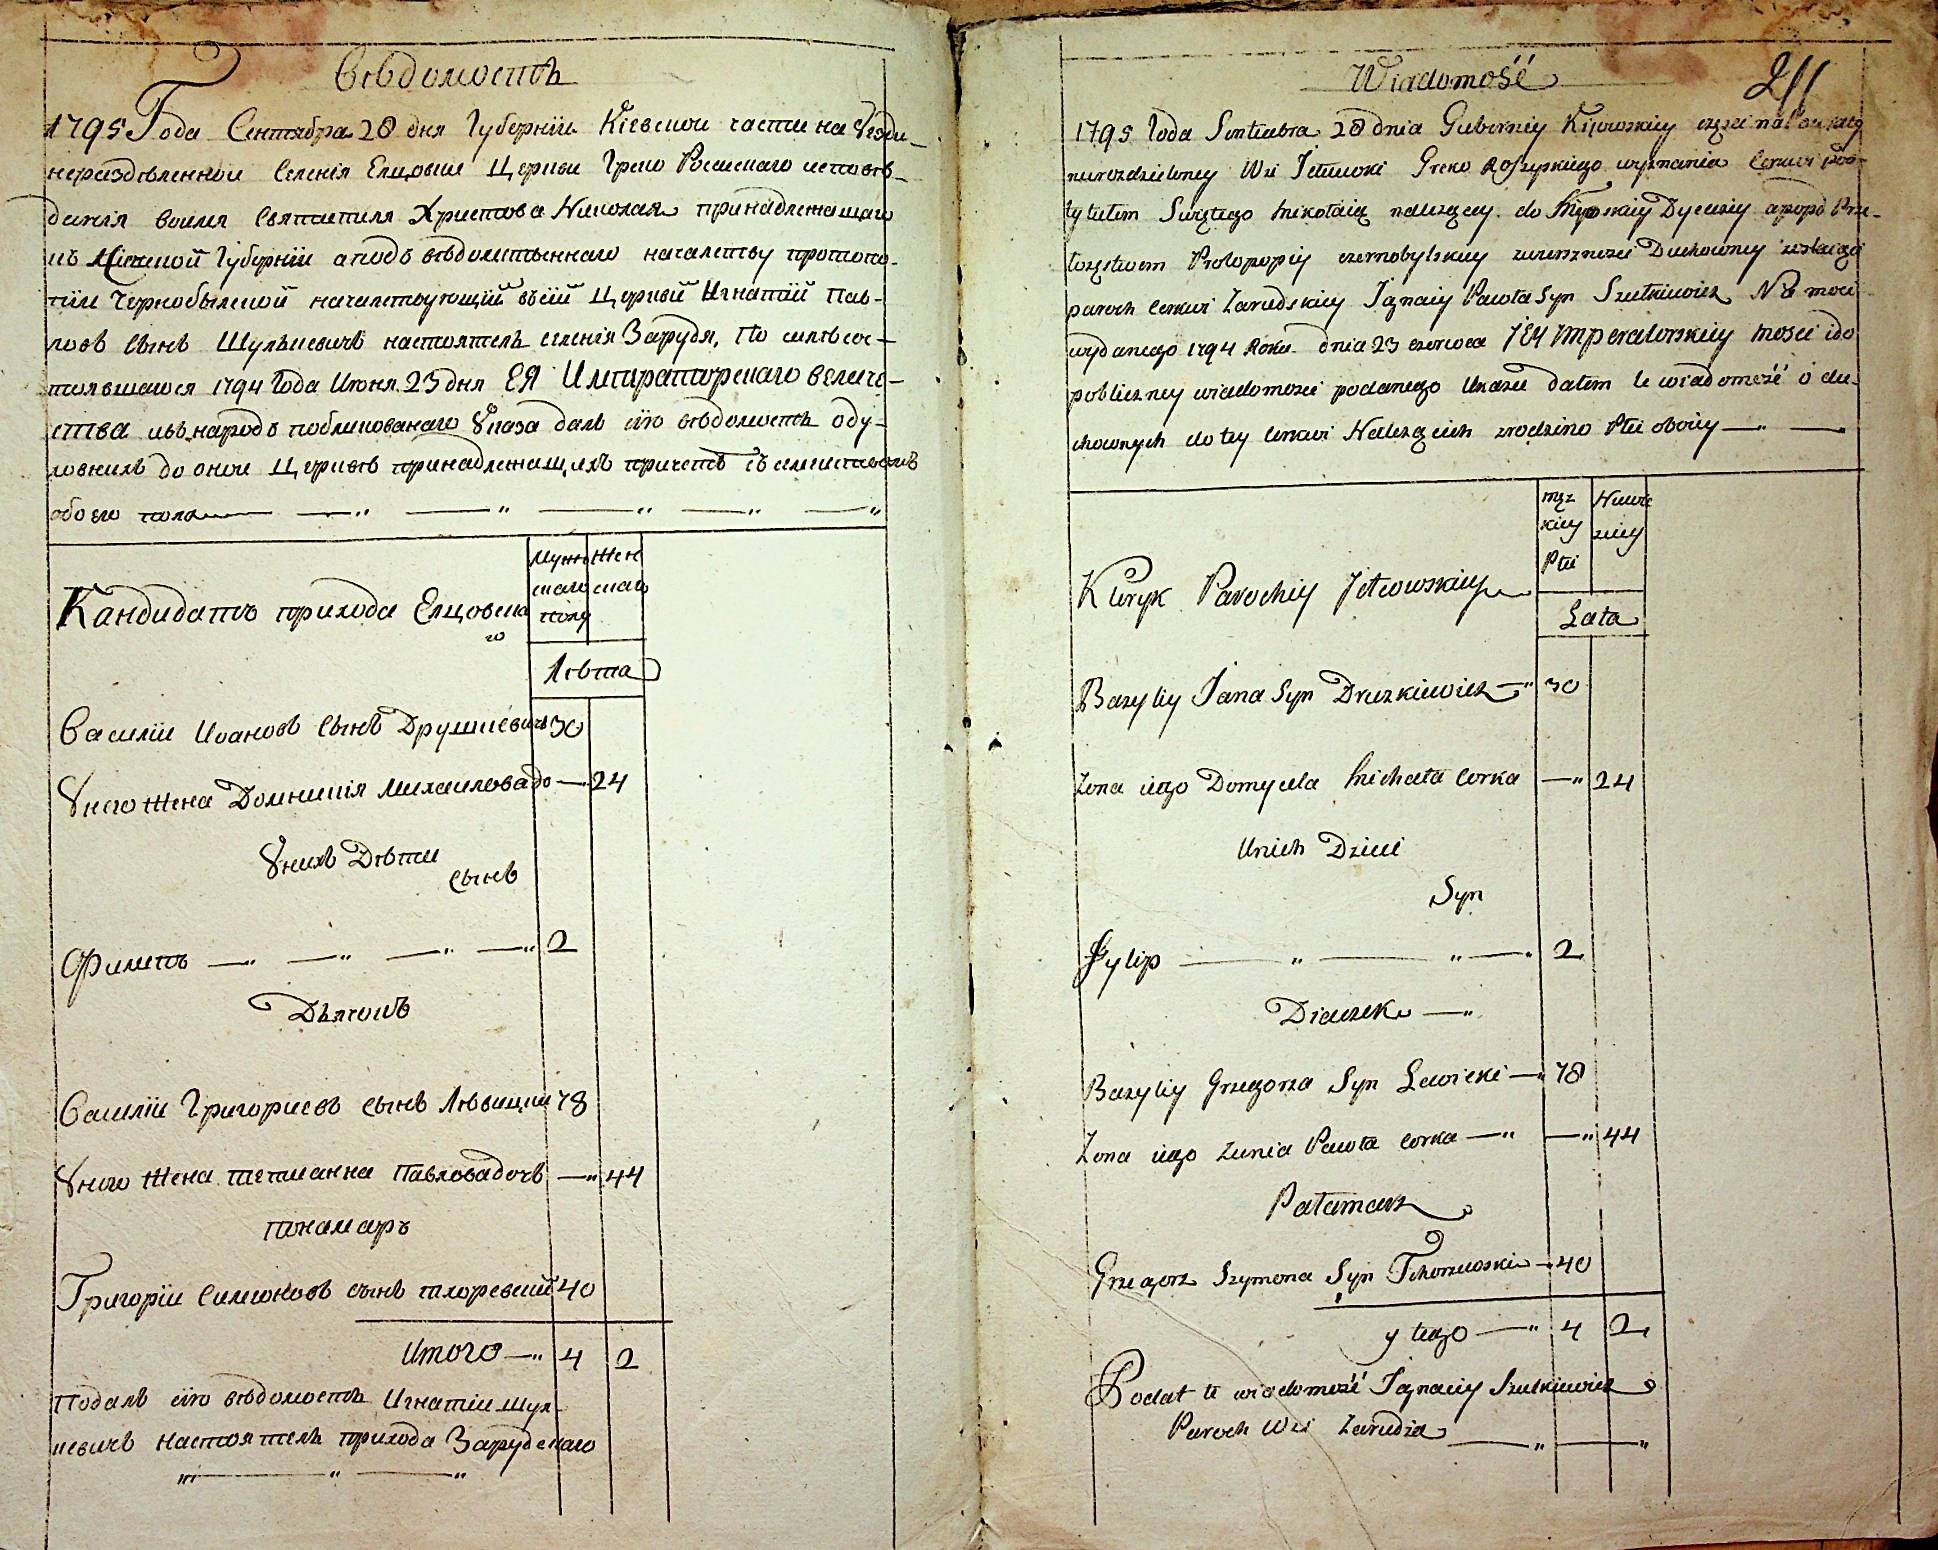 Вѣдомость
1795 Года Сентября 28 дня Губернїи Кіевской части на Уезди
нераздѣленной Селенія Елцовки Церкви Греко Росиского исповѣ-
данія воимя Святителя Христова Николая принадлежащаго
къ Кіевской Губернїи а подъ вѣдомственнаго началству протопо-
пїи Чернобылской началствующїй въсїй Церквй Игнатїй Пав-
ловъ Сынъ Шулкевичъ настоятель селенія Зарудя, По силѣ сос-
тоявшагося 1794 Года Июня 23 дня ЕЯ Императорскаго Величе-
ства ивъ народъ побликованаго Указа далъ сїю вѣдомость о ду-
ховнихъ до оной Церквѣ принадлежащихъ причетъ съ семиствомъ
обоего пола
Мужескаго пола Женскаго
Кандидатъ прихода Елцовска
го
Лѣта
Василїи Ивановъ Сынъ Друшкевичъ 30
У него Жена Домникія Михаиловадо 24
У нихъ Дѣти
сынъ
Филипъ 2
Дьячокъ
Василїи Григориевъ сынъ Лѣвицки 78
У него Жена Павловадочъ 44
Понамаръ
Григорїи Симеоновъ сынъ тхоревский 40
Итого 4 2
Подалъ сїю вѣдомость Игнатїи Шул-
кевичъ настоятель прихода Зарудскаго
Wiadomość 211
1795 Roda Sentiabra 28 dnia Guberniy Kijowskiey części na Powiaty
nierozdzieloney Wsi Jelcowki Greko Rossyyskiego wyznania Cerkwi pod
tytułem Swiętego Mikołaia należącey do Kijowskiey Dyecezij a popod Prze-
łożęstwem Protopopiy czernobylskiey zwierzności Duchowney zostaiącej
paroch Cerkwi Zarudskiey Ignacy Pawła Syn Szulkiewicz Na moci
wydanego 1794 Roku dnia 23 czerwca JEY Imperatorskiey Mości i do
publiczney wiadomości podanego Ukazu dałem te wiadomość o du-
chownych do tey Cerkwi Należących zrodzino Płci oboiey
męz kiey Płci Niewie sciey
Kleryk Parochiy Jelcowskiey
Lata
Bazyliy Jana Syn Druzkiewicz 30
Zona iego Domycela Michała Corka 24
U nich Dzieci
Syn
Fylip 2
Diaczek
Bazyliy Grzegorza Syn Lewicki 78
Zona iego Pawła Corka 44
Patamarz
Grzegorz Szymona Syn Tchorzewski 40
y tego 4 2
Podał te wiadomość Ignacy Szulkiewicz
Paroch Wsi Zarudzia